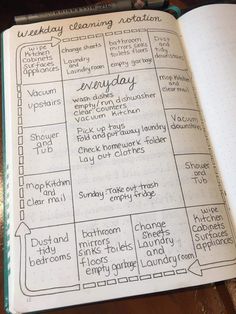 Weekday cleaning rotation
Wipe
Kitchen
Cabinets
Surfaces
appliances
change sheets
Laundry
and
Laundry room
bathroom
mirrors sinks
toilets floors
empty garbage
Dust
and
tidy
bedrooms
Mop Kitchen
and
Clear mail
Vacuum
downstairs
Shower
and
Tub
Wipe
Kitchen
Cabinets
Surfaces
appliances
change
Sheets
Laundry
and
Laundry room
Bathroom
mirrors
sinks toilets
floors
empty garbage
Dust and
tidy
bedrooms
Mop Kitchen
and
Clear mail
Shower
and
Tub
Vacuum
Upstairs
everyday
Wash dishes
empty/run dishwasher
clear counters
Vacuum Kitchen
Pick up toys
Fold and put away laundry
Check homework folder
Lay out clothes
Sunday: Take out trash
empty fridge